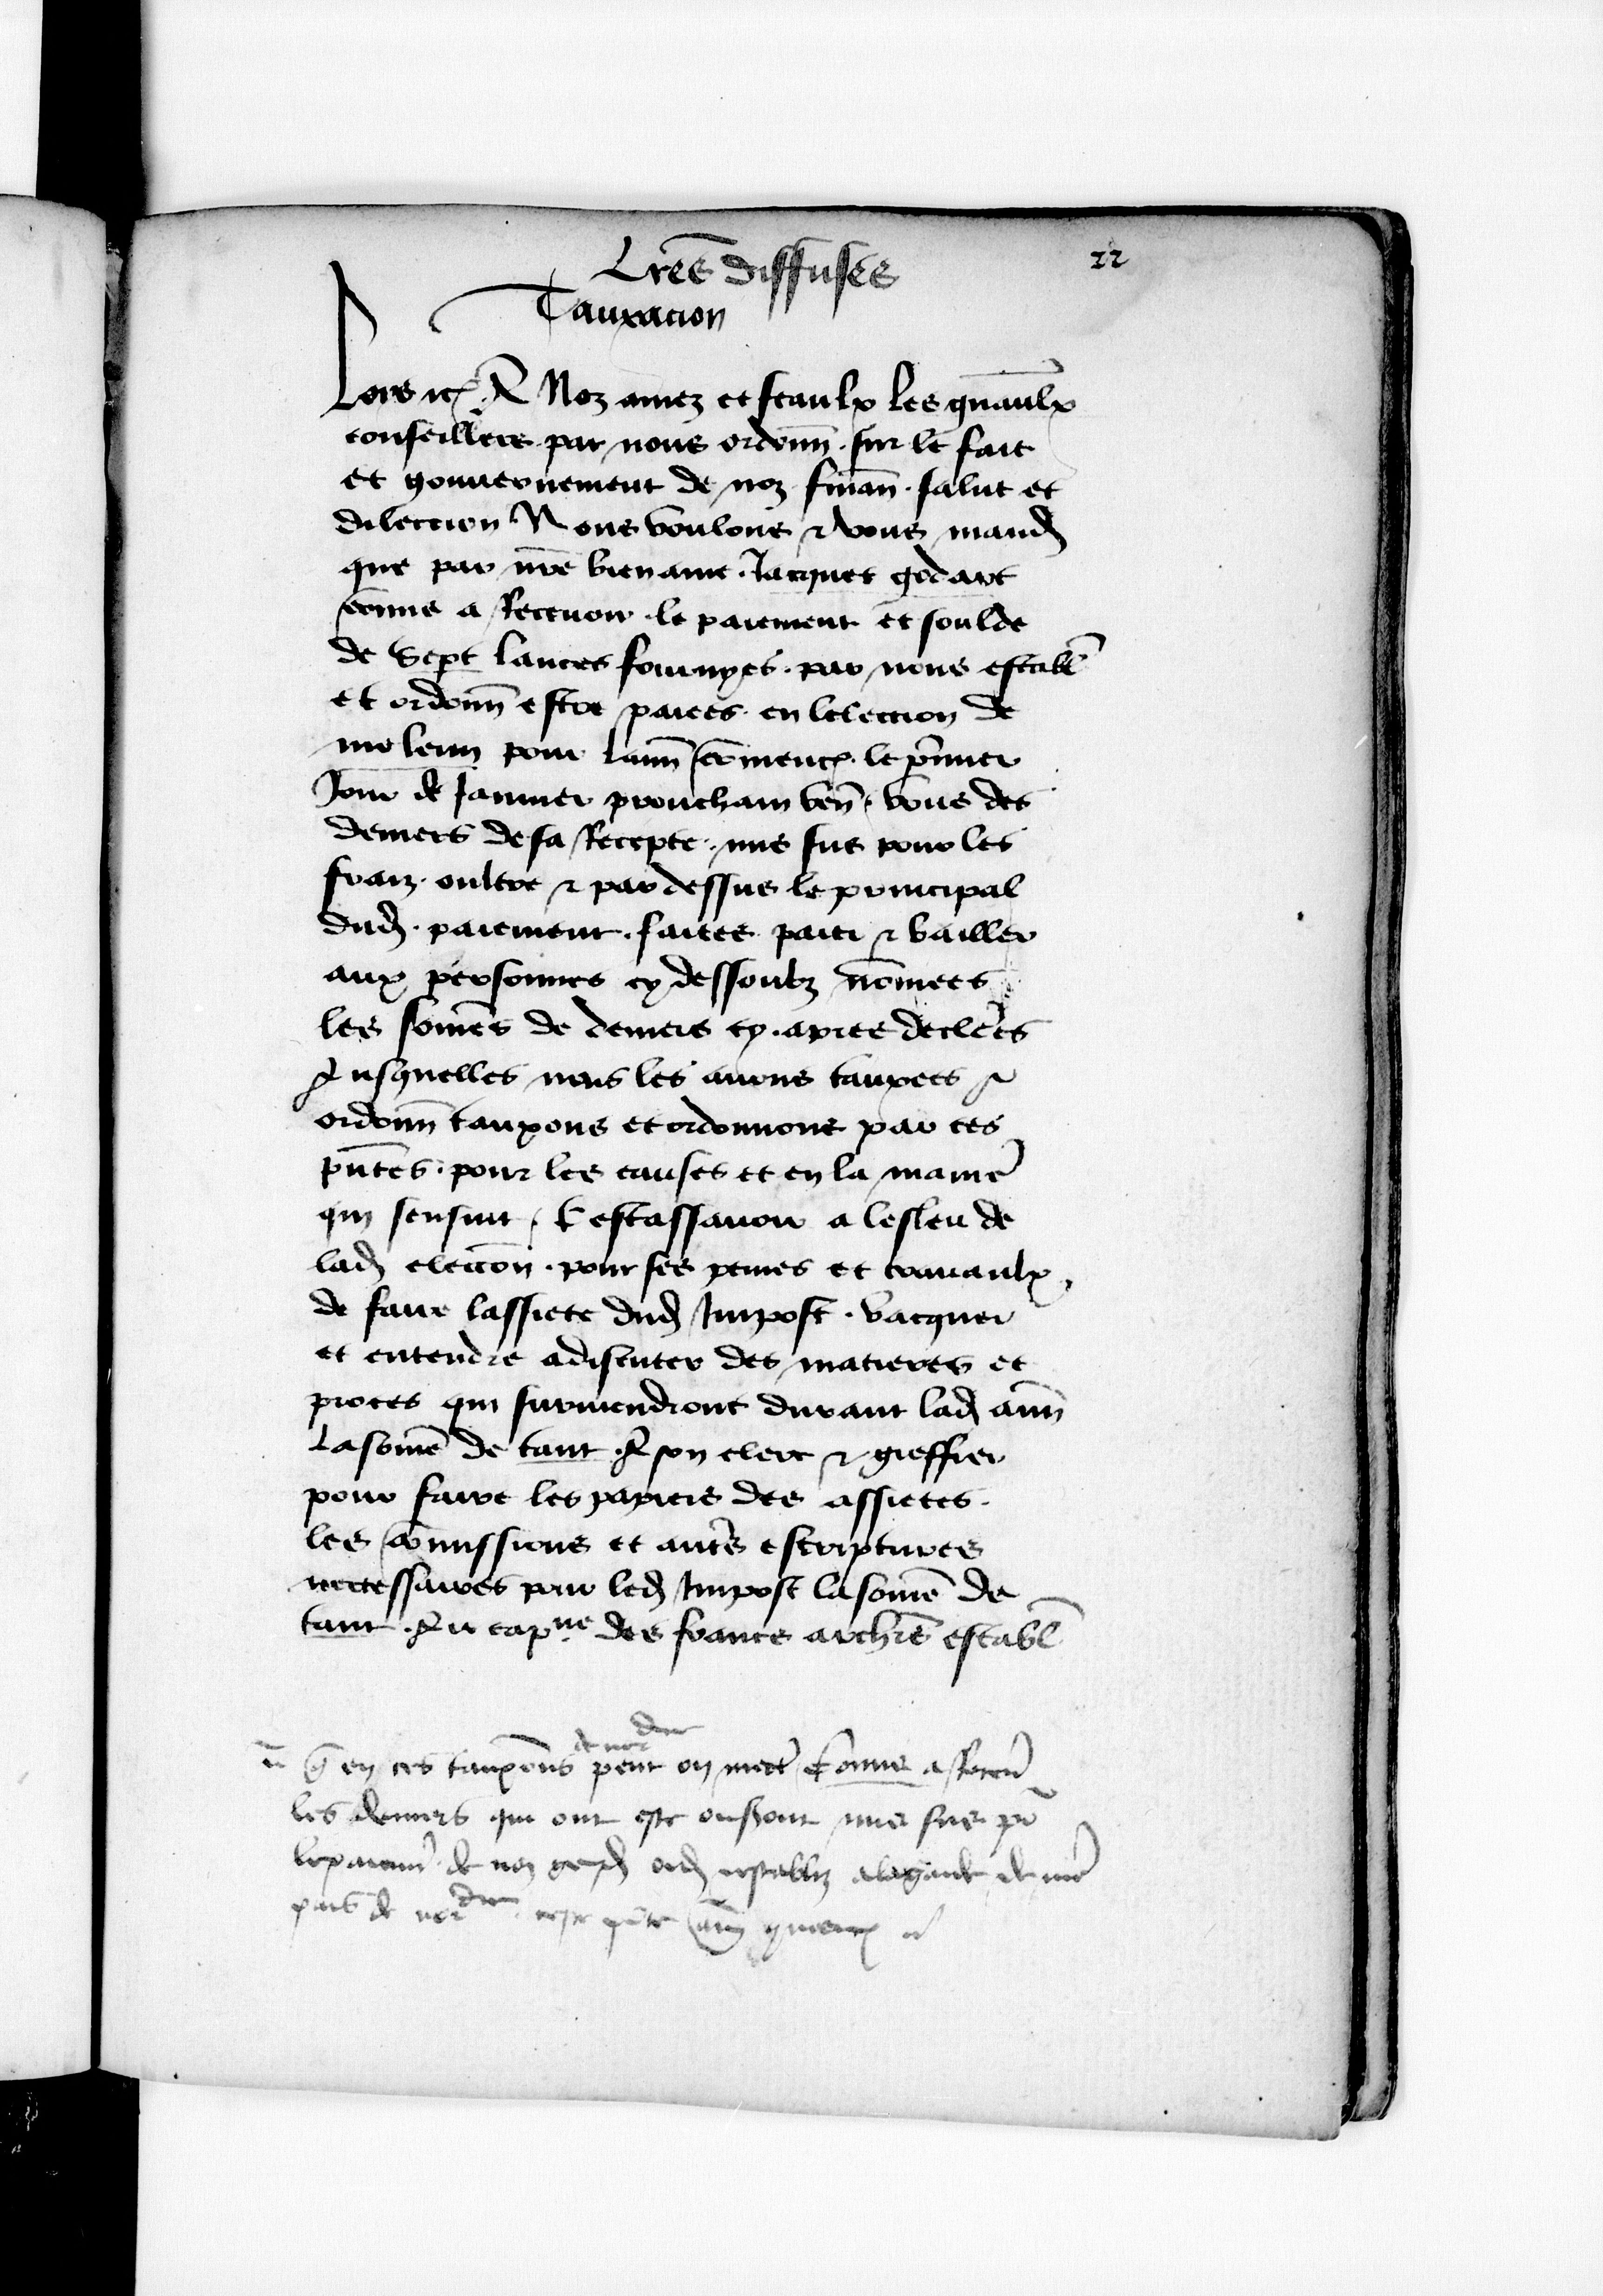 Lres diffuses
22
Tauxacion
Loys etc. A Noz amez et feaulx les gnaulx
conseillers par nous ordonn. sur le fait
et gouvernement de noz finan. salut et
dileccion Nous voulons & vous mand
que par nre bien ame. Jacques godart
comis a Recevoir. le paiement et soulde
de Sept lances fournyes. par nous establ
et ordonn estre paiees. en leleccion de
meleun pour lann commenc. le premier
Jour de Janvier prouchain ven. vous des
deniers de sa Recepte. mis sus pour les
fraiz. oultre & par dessus le principal
dud. paiement. faites paier & bailler
aux personnes cy dessoubz nommees
les sommes de deniers cy. apres declerees
Ausquelles nous les avons tauxees &
ordonn tauxons et ordonnons par ces
pntes. pour les causes et en la maniere
qui sensuit. Cestassavoir a lesleu de
lad eleccion. pour ses peines et travaulx
de faire lassiete dud Impost. vacquer
et entendre a discuter des matieres et
proces qui surviendront durant lad ann
La somme de tant. A son clerc & greffier
pour faire les papiers des assietes.
les commissions et autres escriptures
necessaires pour led Impost la somme de
tant. Au capne des francs archiers establ
en ces tauxons de nordie peut on mectre Comis a Recevoir
les deniers qui ont este ou sont mis sus pr
le paiement de noz gens dordce establiz a la garde de nre
pais de nordie